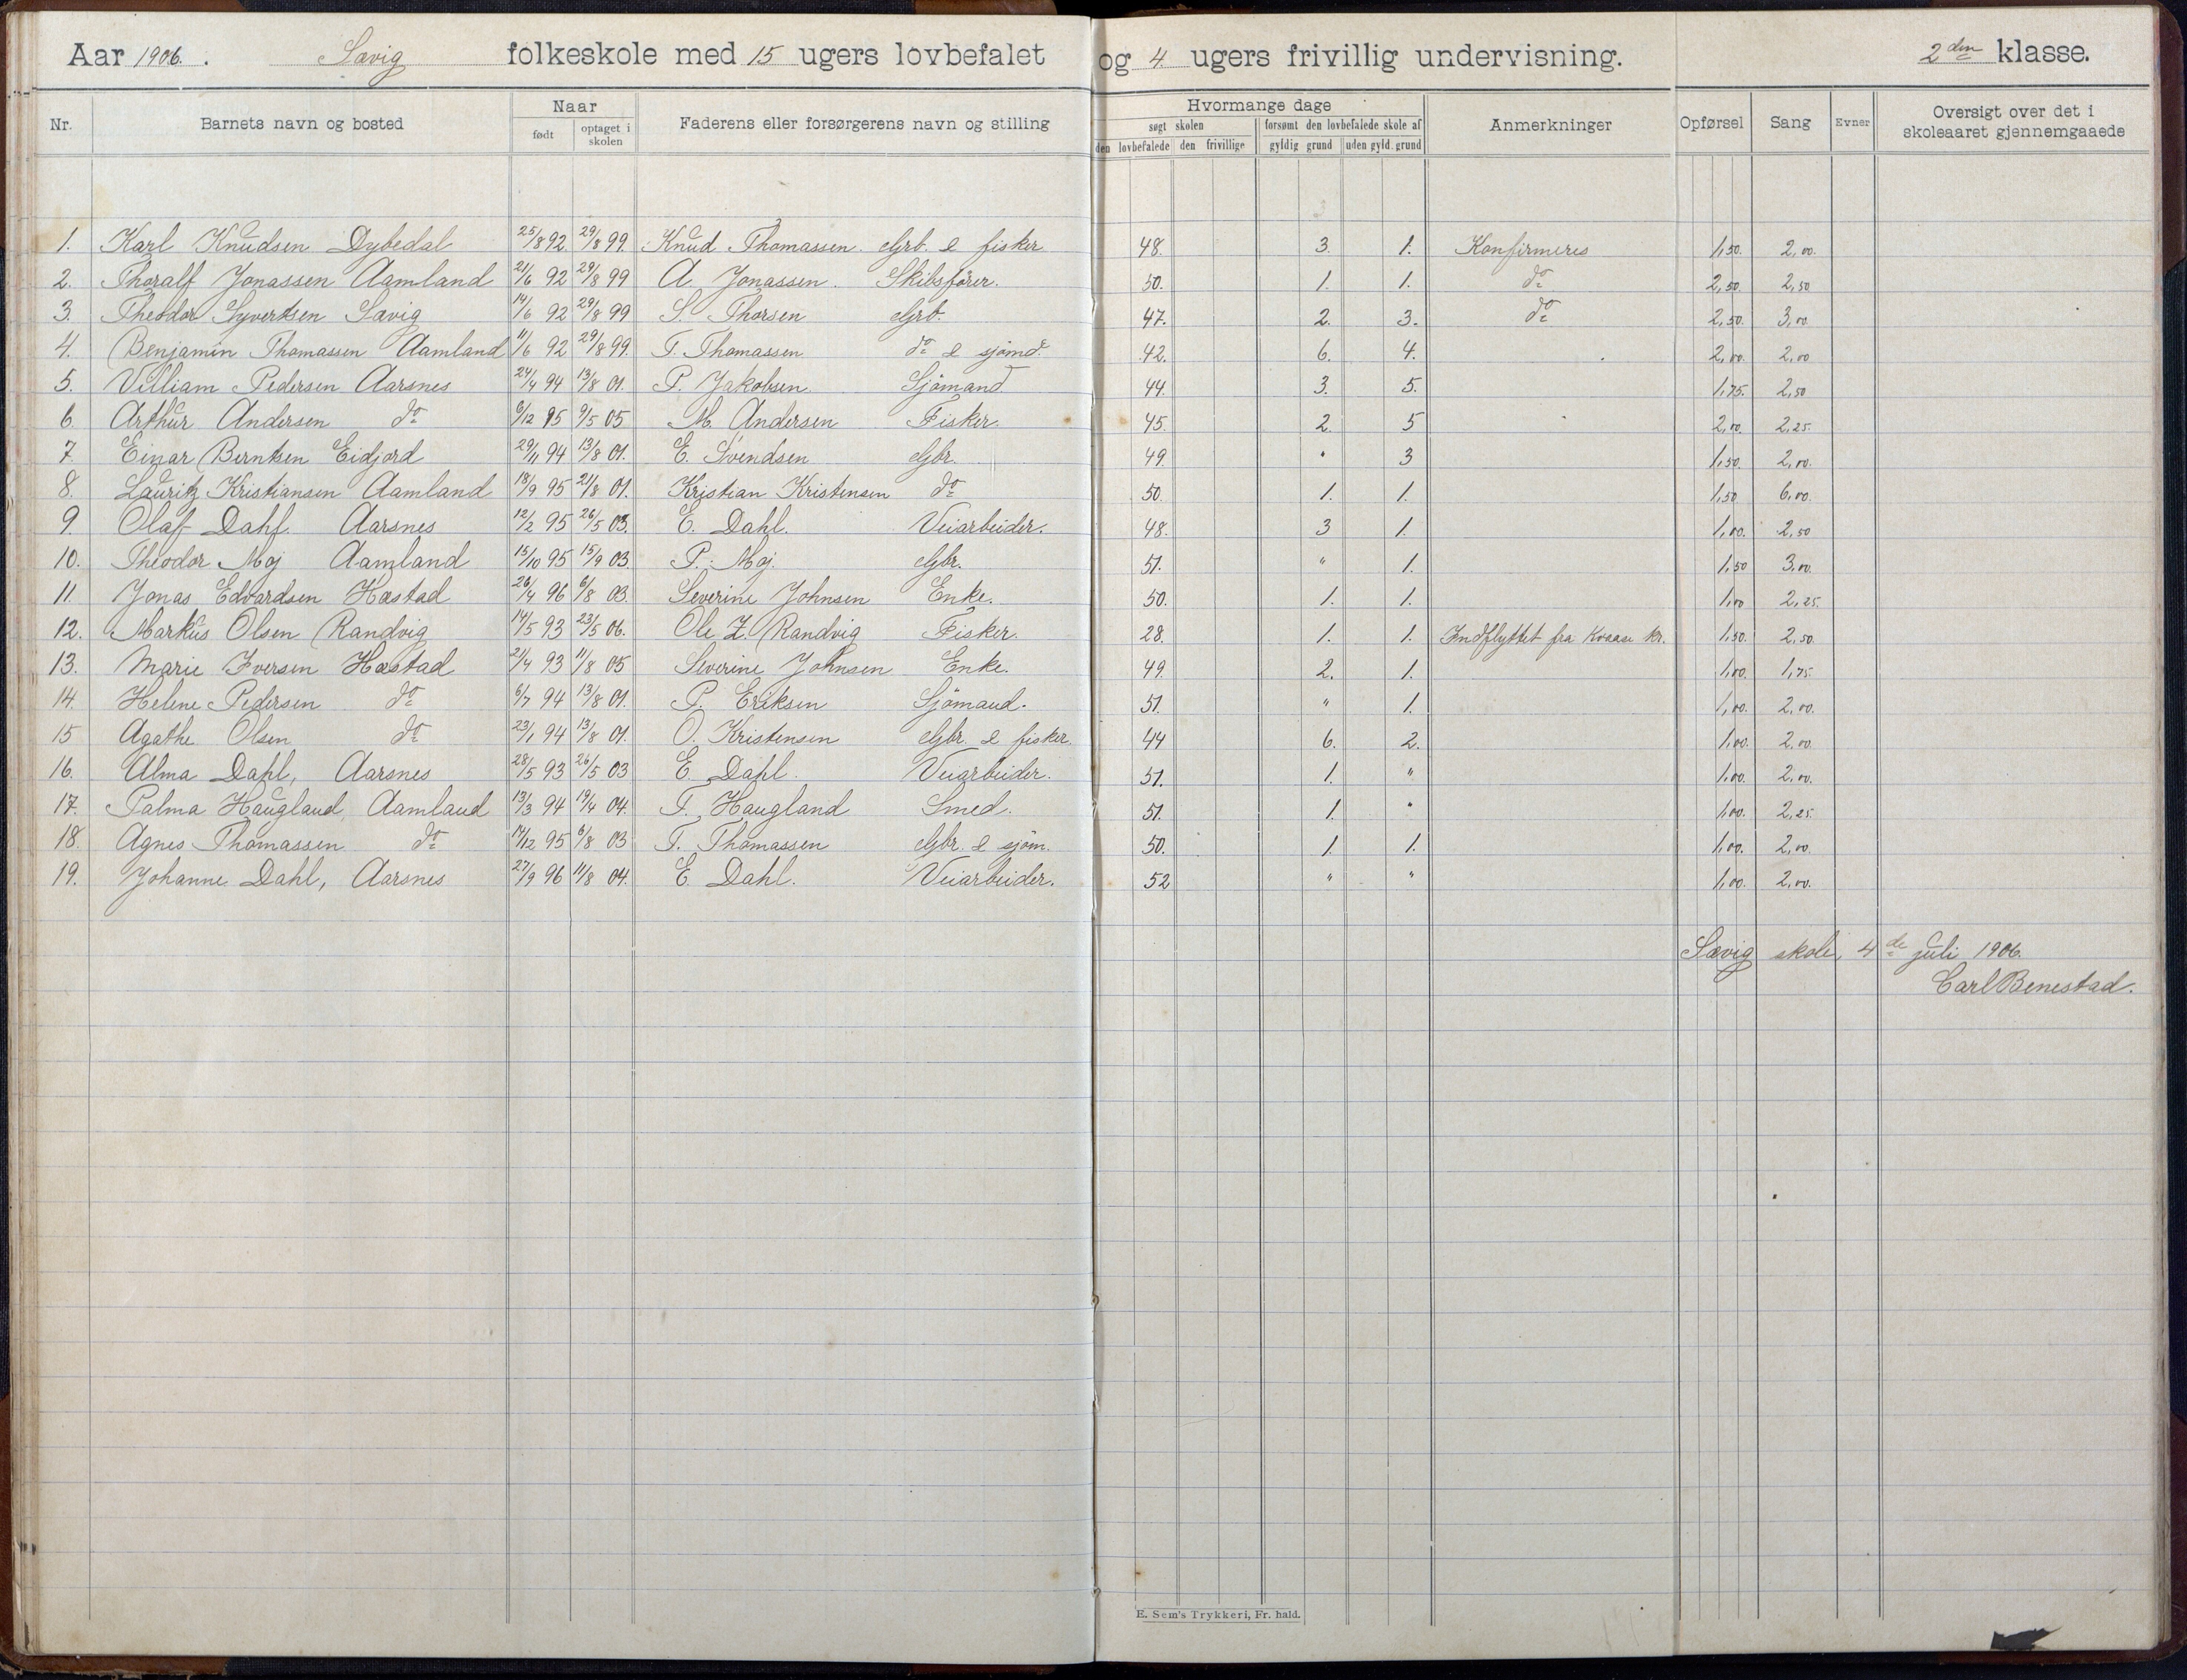 Aar 1906. Sævig folkeskole med 15 ugers lovbefalet og 4 ugers frivillig undervisning. 2den klasse.
Nr. Barnets navn og bosted Naar Faderens eller forsørgerens navn og stilling Hvormange dage Anmerkninger Opførsel Sang Evner Oversigt over det i skoleaaret gjennemgaaede
født optaget i skolen søgt skolen forsømt den lovbefalede skole af
den lovbefalede den frivillige gyldig grund uden gyld. grund
1. Karl Knudsen Dybedal 25/8 92 29/8 99. Knud Thomassen. Grb. & fisker 48. 3. 1. Konfirmeres 1,50. 2,00.
2. Thoralf Jonassen Aamland 21/6 92 29/8 99 A. Jonassen. Skibsfører. 50. 1. 1. do 2,50. 2,50
3. Theodor Syvertsen Sævig 14/6 92 29/8 99 S. Thorsen Grb. 47. 2. 3. do 2,50. 3,00.
4. Benjamin Thomassen Aamland 11/6 92 29/8 99. T. Thomassen do & sjømd. 42. 6. 4. 2,00. 2,00
5. Villiam Pedersen Aarsnes 24/4 94 13/8 01. P. Jakobsen. Sjømand 44. 3. 5. 1,75. 2,50
6. Arthur Andersen do 6/12 95 9/5 05 M. Andersen Fisker. 45. 2. 5 2,00. 2,25.
7. Einar Berntsen Eidjord 29/11 94 13/8 01. E. Svendsen Gbr. 49. " 3 1,50. 2,00.
8. Lauritz Kristiansen Aamland 18/9 95 21/8 01. Kristian Kristensen do 50. 1. 1. 1,50 6,00.
9. Olaf Dahl. Aarsnes 12/2 95 26/5 03. E. Dahl. Veiarbeider. 48. 3 1. 1,00. 2,50
10. Theodor Moj Aamland 15/10 95 15/9 03. P. Moj. Gbr. 51. " 1. 1,50 3,00.
11. Jonas Edvardsen Hæstad 26/4 96 6/8 03. Severine Johnsen Enke. 50. 1. 1. 1,00 2,25.
12. Markus Olsen Randvig 14/5 93 23/5 06. Ole Z. Randvig Fisker. 28. 1. 1. Indflyttet fra Kvaase kr. 1,50. 2,50.
13. Marie Iversen Hæstad 21/4 93 11/8 05 Severine Johnsen Enke. 49. 2. 1. 1,00. 1,75.
14. Helene Pedersen do 6/7 94 13/8 01. P. Eriksen Sjømand. 51. " 1. 1,00. 2,00.
15 Agathe Olsen do 23/1 94 13/8 01. O. Kristensen Gbr. & fisker. 44 6. 2. 1,00. 2,00.
16. Alma Dahl, Aarsnes 28/5 93 26/5 03 E. Dahl. Veiarbeider. 51. 1. " 1,00. 2,00.
17. Palma Haugland, Aamland 13/3 94 19/4 04. T. Haugland Smed. 51. 1. " 1,00. 2,25.
18. Agnes Thomassen do 14/12 95 6/8 03 T. Thomassen Gbr. & sjøm. 50. 1. 1. 1,00. 2,00.
19. Johanne Dahl, Aarsnes 27/9 96 11/8 04. E. Dahl. Veiarbeider. 52 " " 1,00. 2,00.
Sævig skole, 4de juli 1906.
Carl Benestad.
E. Sem's Trykkeri, Fr. hald.